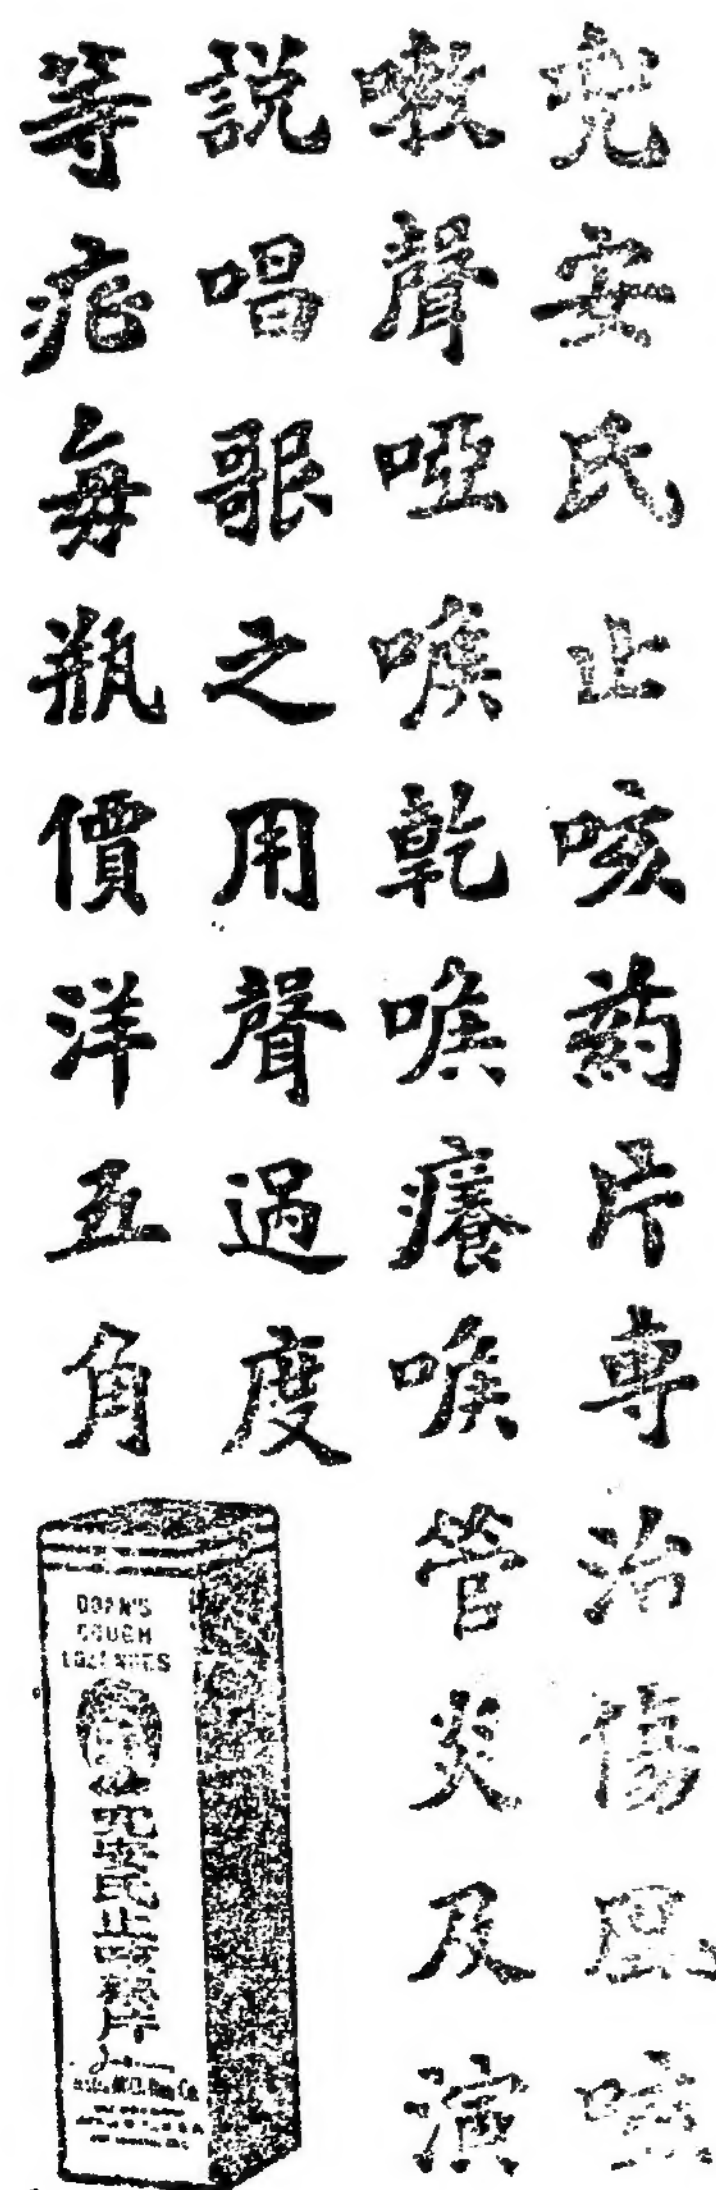 兜安氏止咳葯片專治傷風咳
嗽聲啞喉乾喉癢喉管炎及演
說唱歌之用聲過度
等症每瓶價洋五角
DOAN'S
COUGH
LOZENGES
兜安氏止咳葯片